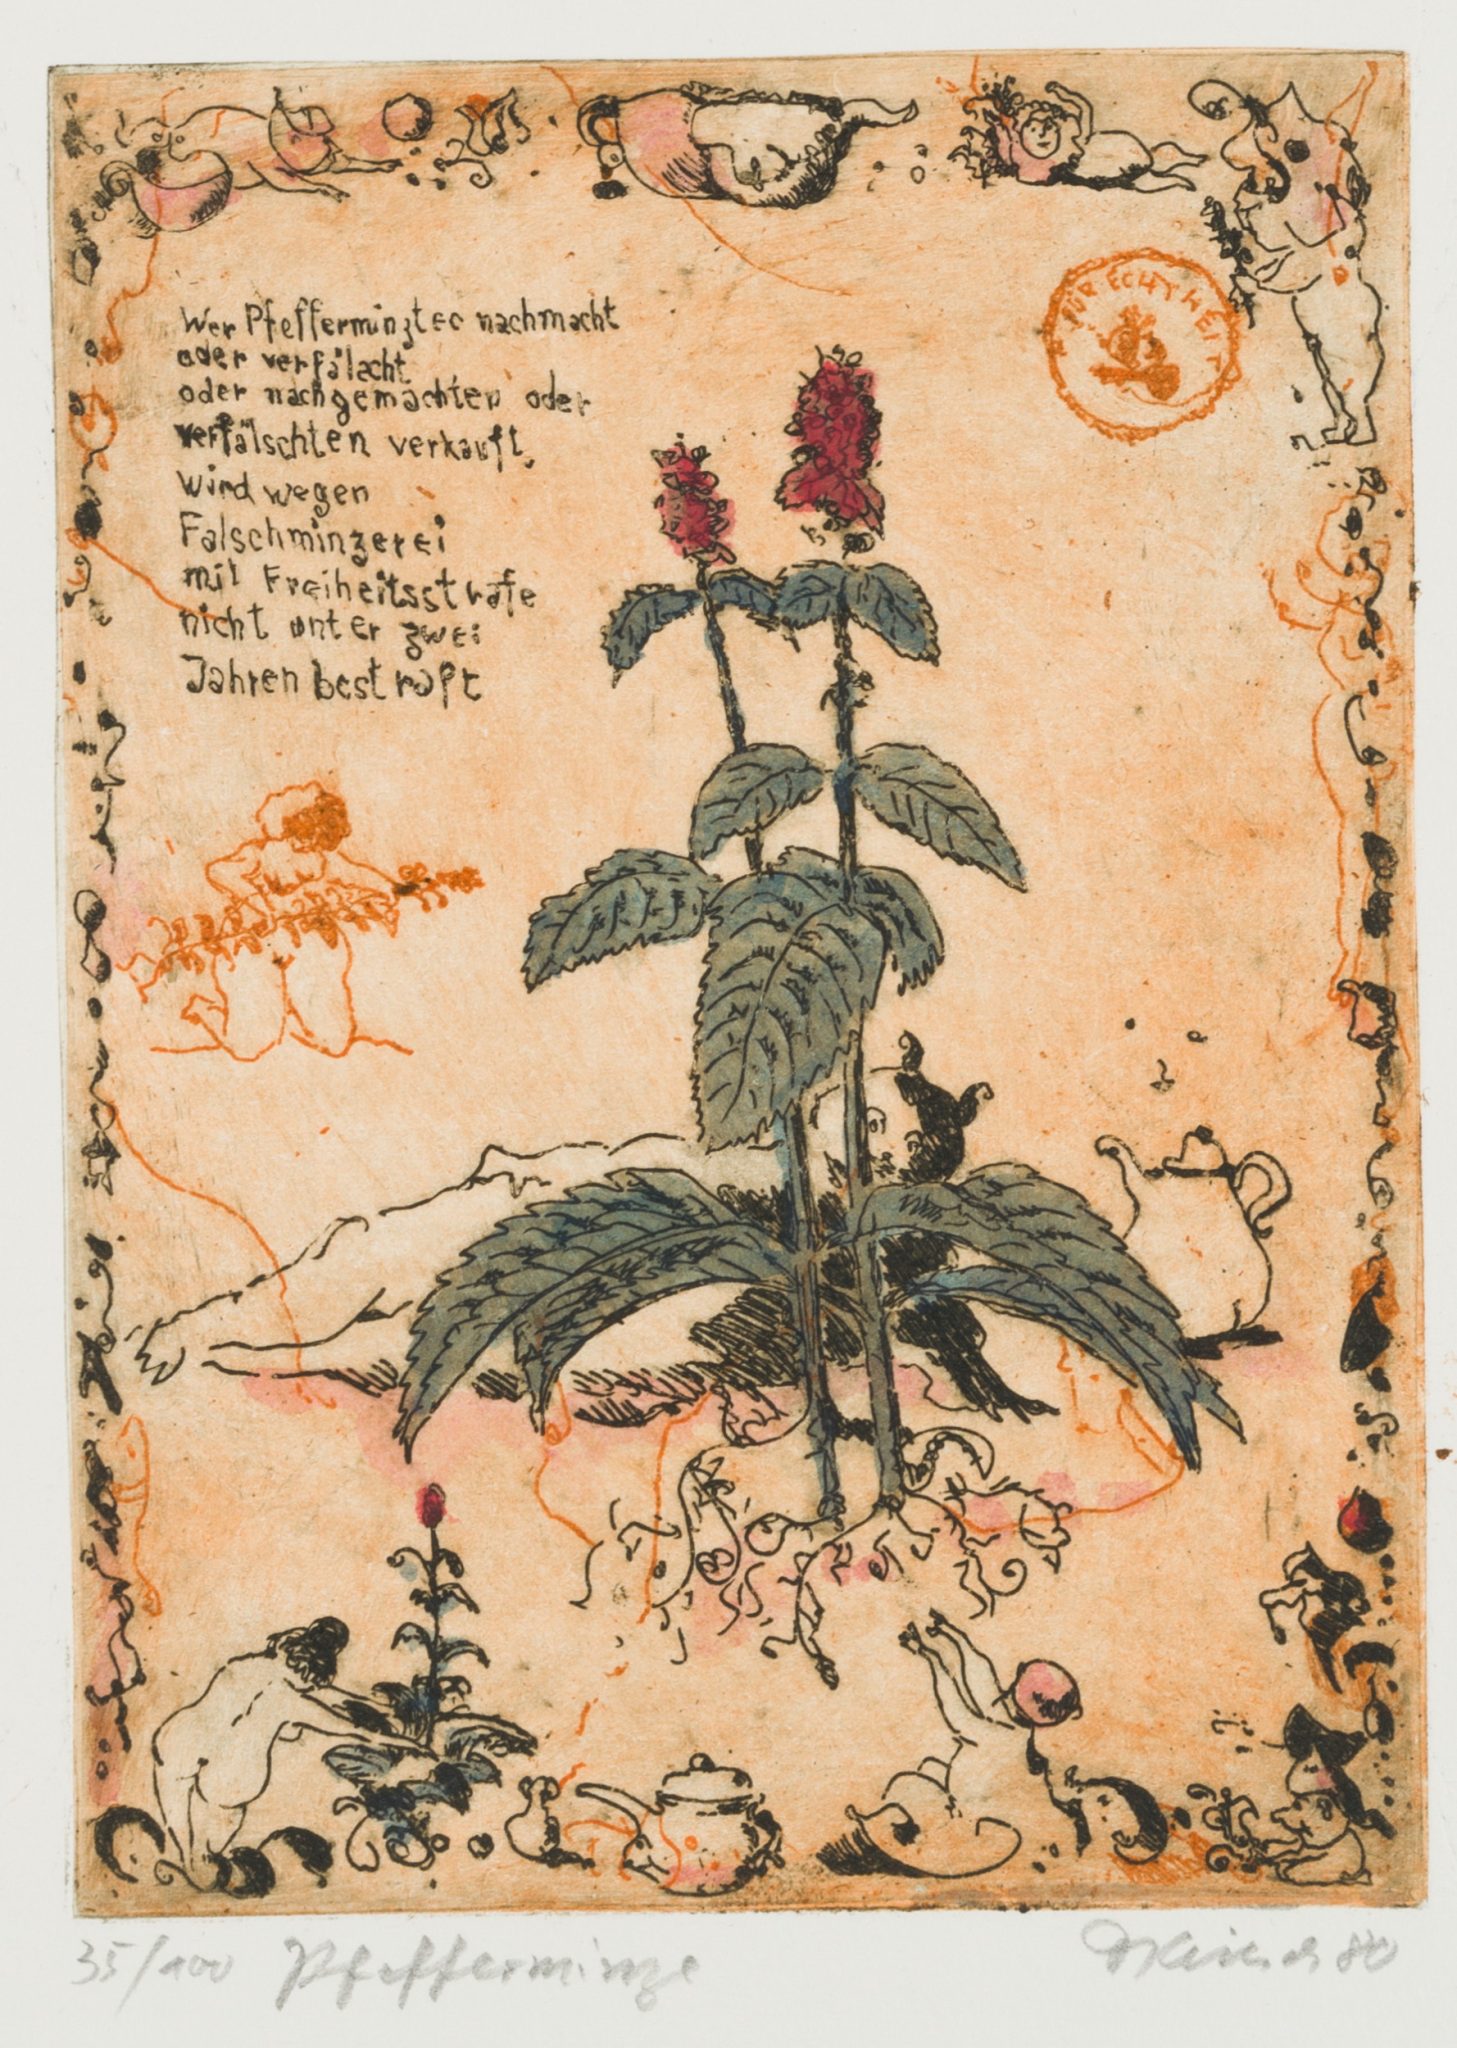 Wer Pfefferminztee nachmacht
oder verfälscht
oder nachgemachten oder
verfälschten verkauft,
wird wegen
Falschminzerei
mit Freiheitsstrafe
nicht unter zwei
Jahren bestraft
FÜR ECHTHEIT
35/100 Pfefferminze
80